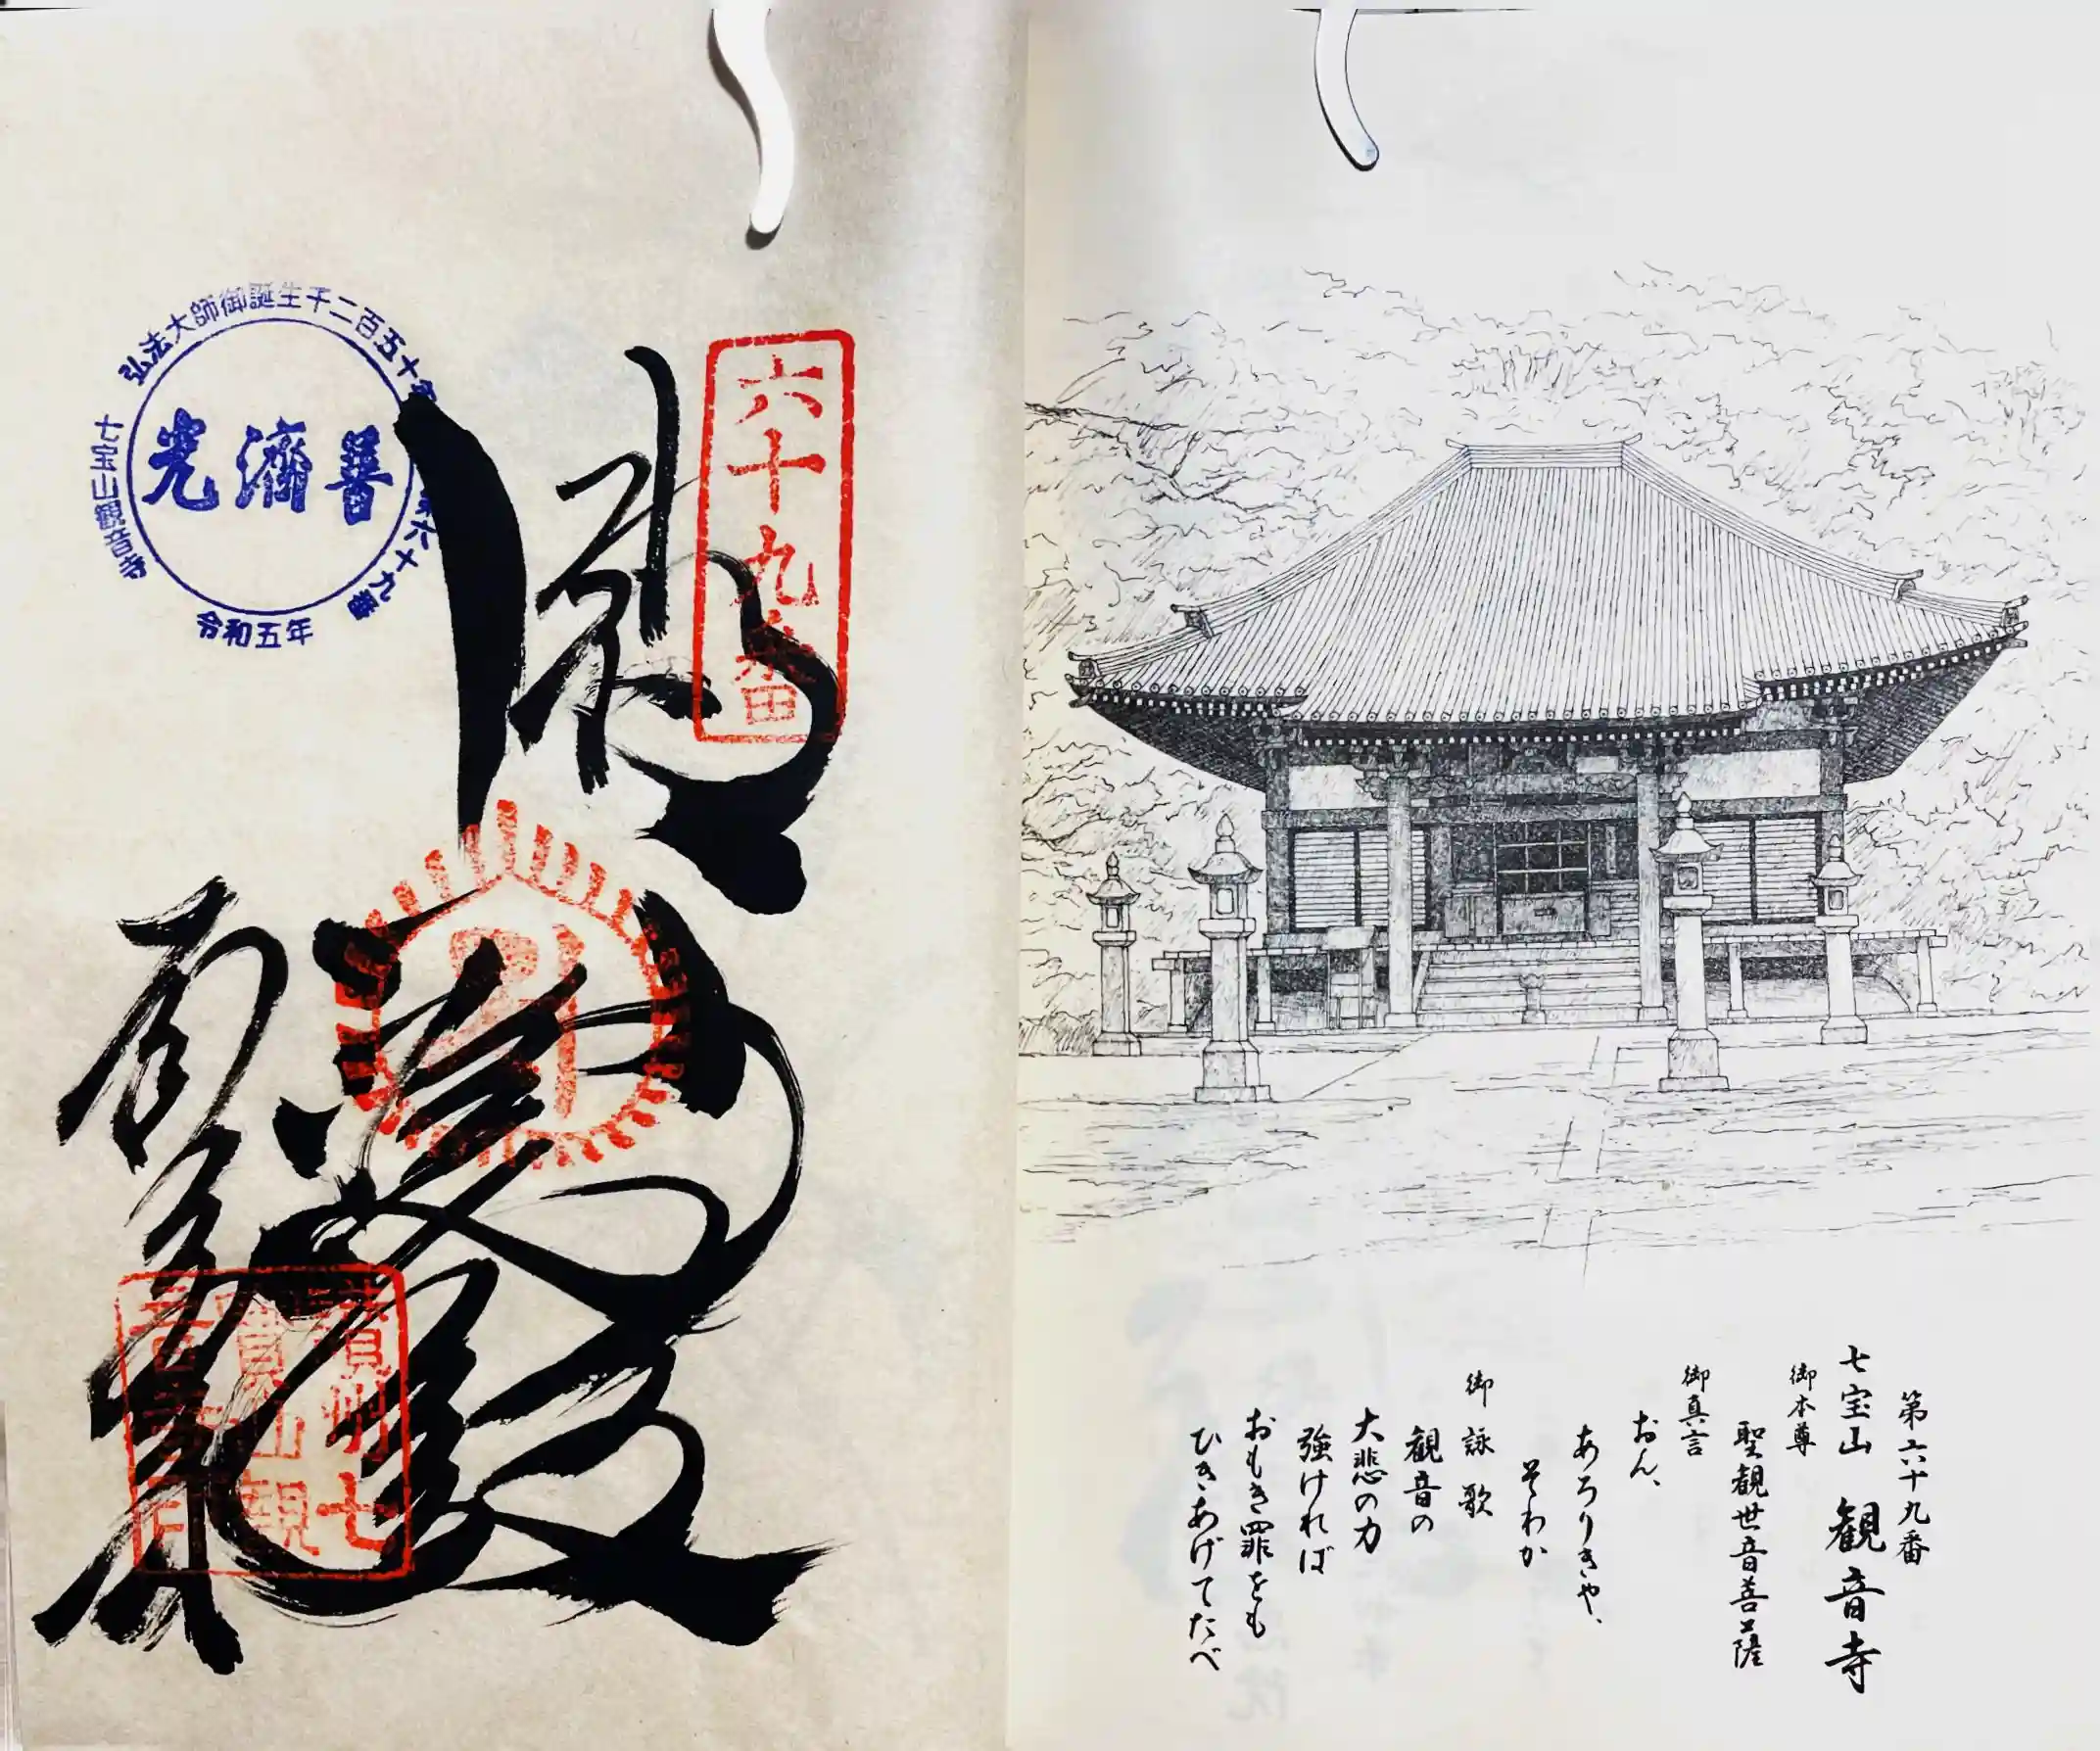 第六十九番
七宝山 観音寺
御本尊
聖観世音菩薩
御真言
おん、
あろりきや、
そわか
御詠歌
観音の
大悲の力
強ければ
おもき罪をも
ひきあげてたべ
六十九番
弘法大師御誕生千二百五十年
第六十九番
善濟光
七宝山観音寺
令和五年
讃州七
寳山観
音寺印